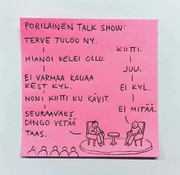 PORILAINEN TALK SHOW:
TERVE TULOO NY.
KIITTI.
HIANOI KELEI OLLU.
JUU.
EI VARMAA KAUAA
KEST KYL.
EI KYL.
NONI KIITTI KU KÄVIT.
EI MITÄÄ.
SEURAAVAKS
DINGO VETÄÄ
TAAS.